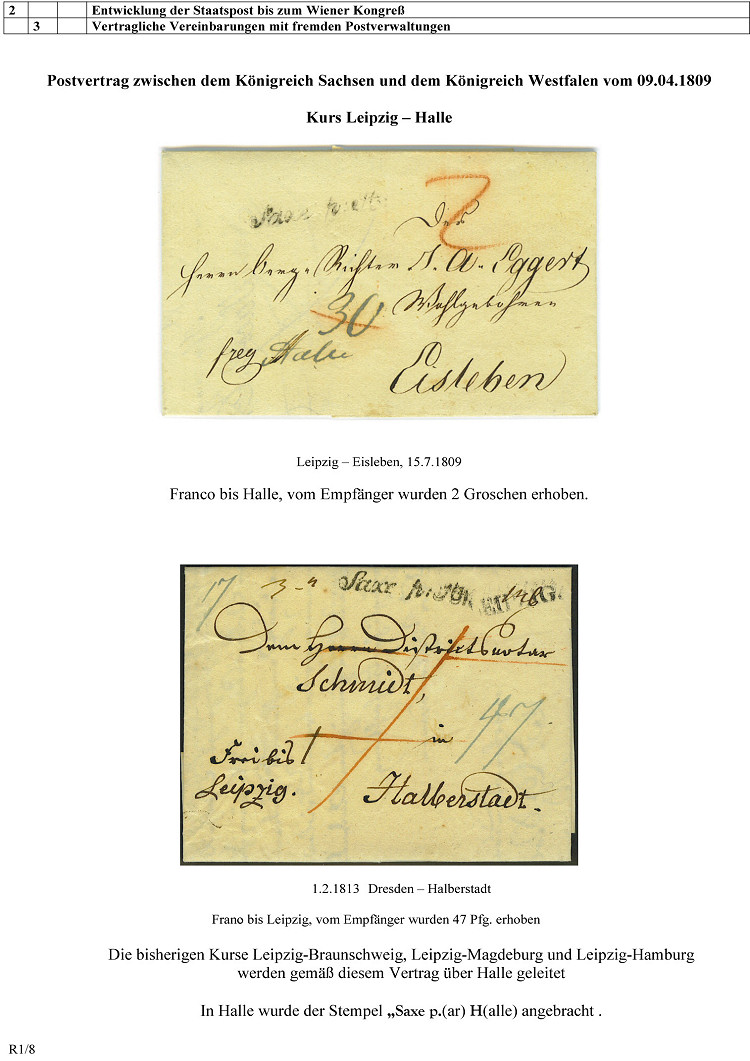 2 Entwicklung der Staatspost bis zum Wiener Kongreß
3 Vertragliche Vereinbarungen mit fremden Postverwaltungen
Postvertrag zwischen dem Königreich Sachsen und dem Königreich Westfalen vom 09.04.1809
Kurs Leipzig – Halle
Saxe p.
2
Herrn Berg Richter J. A. Eggert
30
Wohlgebohren
Halle
Eisleben
Leipzig – Eisleben, 15.7.1809
Franco bis Halle, vom Empfänger wurden 2 Groschen erhoben.
17 3 Saxe p.
Dem Herrn Districtsnotar
Schmidt,
47
in
Frei bis
Leipzig.
Halberstadt.
1.2.1813 Dresden – Halberstadt
Frano bis Leipzig, vom Empfänger wurden 47 Pfg. erhoben
Die bisherigen Kurse Leipzig-Braunschweig, Leipzig-Magdeburg und Leipzig-Hamburg
werden gemäß diesem Vertrag über Halle geleitet
In Halle wurde der Stempel „Saxe p.(ar) H(alle) angebracht .
R1/8